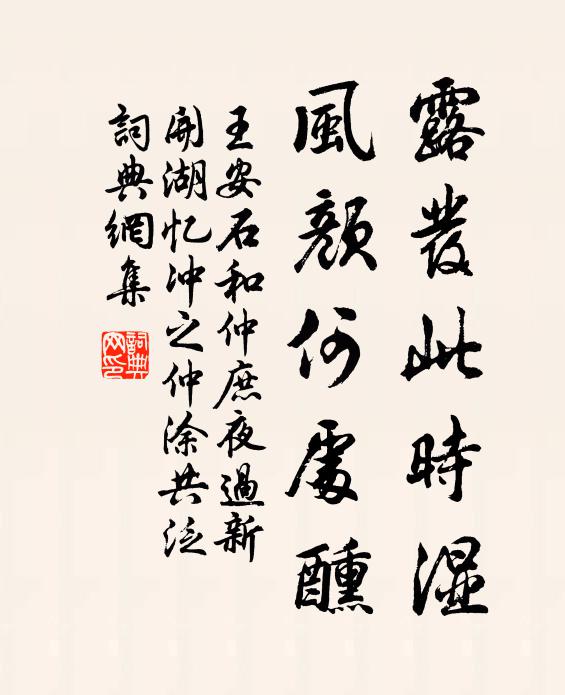 露發此時湿
風顏何處醺
王安石和仲庶夜過新
開湖忆冲之仲涂共泛
詞典網集
詞典
网印